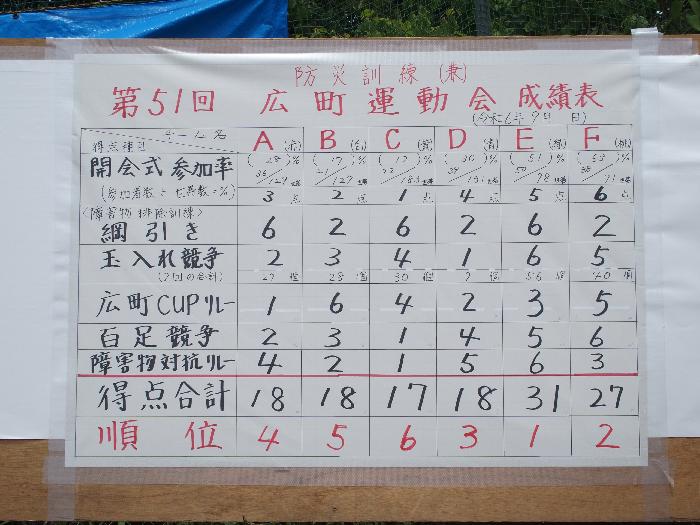 防災訓練(兼)
第51回 広町運動会成績表
(令和6年9月 日)
チーム名 A B C D E F
得点種目
開会式参加率 (28)% (17)% (12)% (30)% (51)% (53)%
36/127 21/127
(参加者数÷世帯数=%) 3点 2点 1点 4点 5点 6点
<障害物排除訓練>
綱引き 6 2 6 2 6 2
玉入れ競争 2 3 4 1 6 5
(2回の合計) 27個 28個 30個 9個 56個 40個
広町CUPリレー 1 6 4 2 3 5
百足競争 2 3 1 4 5 6
障害物対抗リレー 4 2 1 5 6 3
得点合計 18 18 17 18 31 27
順位 4 5 6 3 1 2